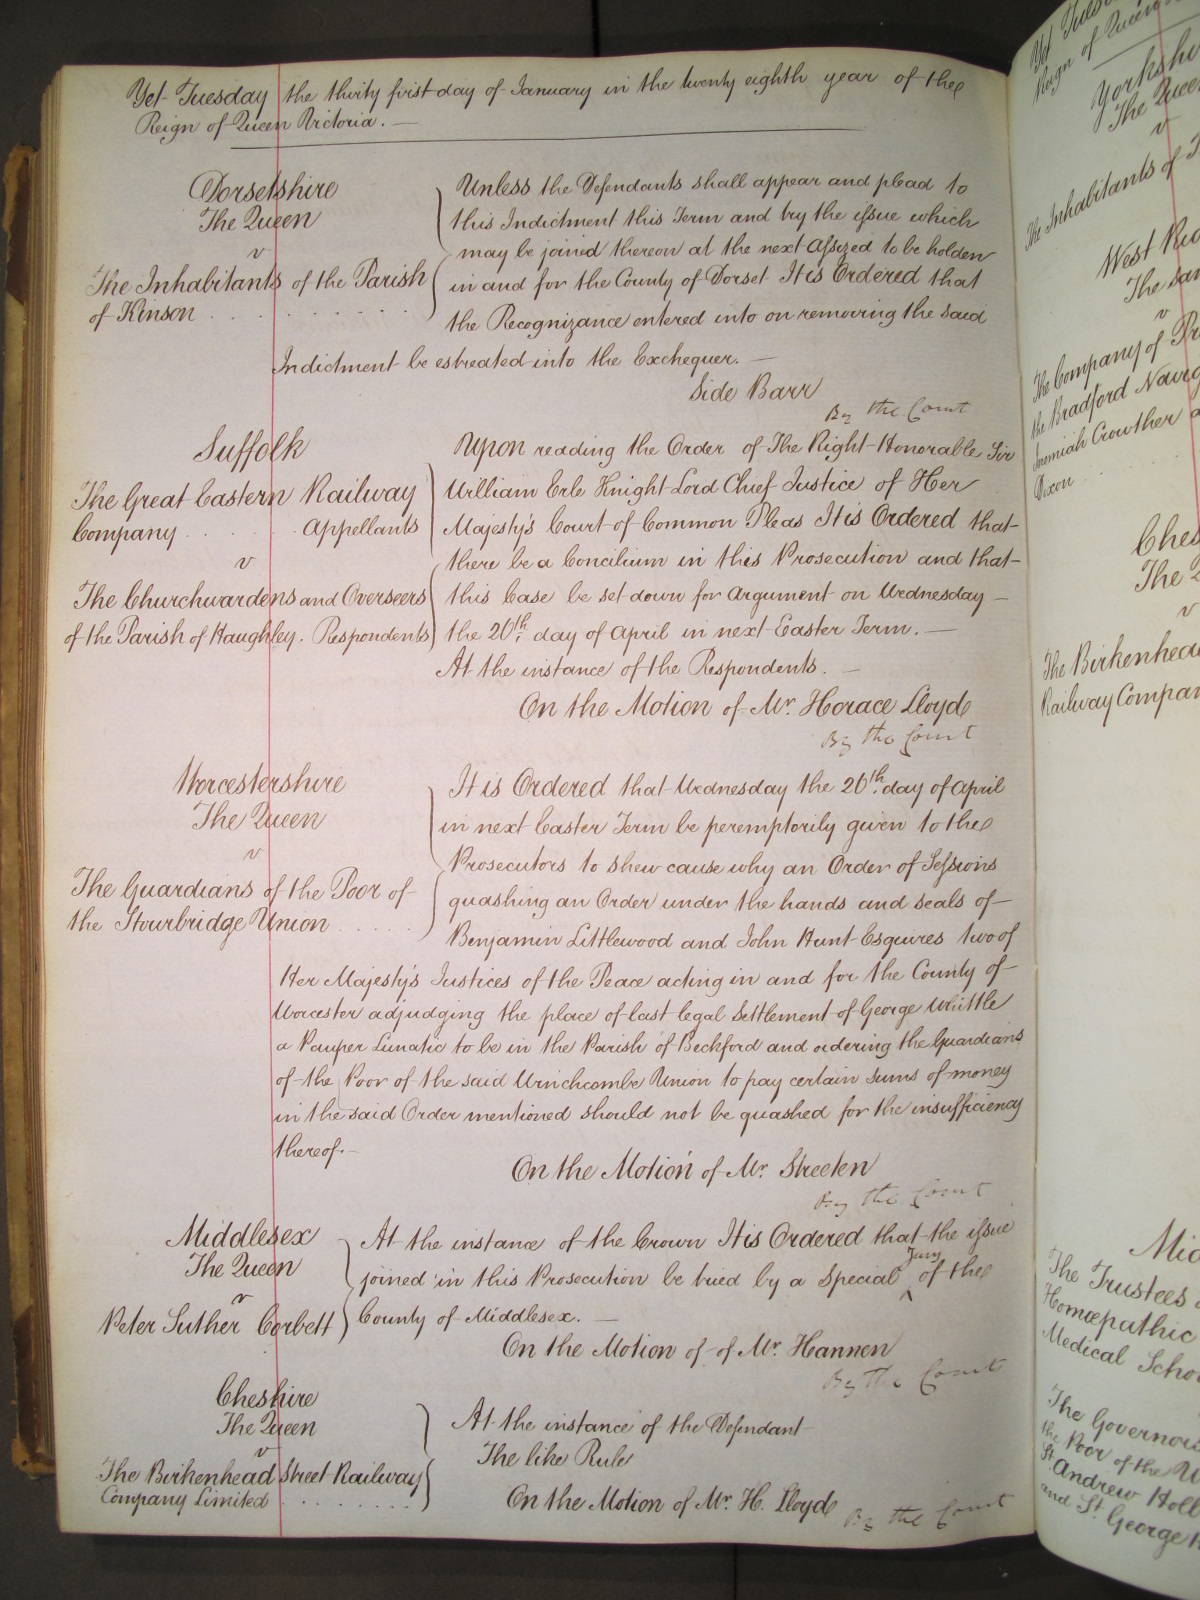 Yet Tuesday the thirty first day of January in the twenty eighth year of the
Reign of Queen Victoria. —
Dorsetshire
The Queen
v
The Inhabitants of the Parish
of Kinson . . . . . . . . . .
Unless the Defendants shall appear and plead to
this Indictment this Term and try the issue which
may be joined thereon at the next Assized to be holden
in and for the County of Dorset It is Ordered that
the Recognizance entered into on removing the said
Indictment be estreated into the Exchequer. —
Side Barr
By the Court
Suffolk
The Great Eastern Railway
Company . . . . . Appellants
v
The Churchwardens and Overseers
of the Parish of Haughley. Respondents
Upon reading the Order of The Right Honorable Sir
William Erle Knight Lord Chief Justice of Her
Majesty's Court of Common Pleas It is Ordered that
there be a Concilium in this Prosecution and that
this Case be set down for Argument on Wednesday —
the 26th. day of April in next Easter Term. —
At the instance of the Respondents. —
On the Motion of Mr. Horace Lloyd
By the Court
Worcestershire
The Queen
v
The Guardians of the Poor of
the Stourbridge Union . . . . .
It is Ordered that Wednesday the 26th. day of April
in next Easter Term be peremptorily given to the
Prosecutors to shew cause why an Order of Sessions
quashing an Order under the hands and seals of
Benjamin Littlewood and John Hunt Esquires two of
Her Majesty's Justices of the Peace acting in and for the County of
Worcester adjudging the place of last legal Settlement of George Whittle
a Pauper Lunatic to be in the Parish of Beckford and ordering the Guardians
of the Poor of the said Winchcombe Union to pay certain sums of money
in the said Order mentioned should not be quashed for the insufficiency
thereof. —
On the Motion of Mr. Streeten
By the Court
Middlesex
The Queen
v
Peter Suther Corbett
At the instance of the Crown It is Ordered that the issue
joined in this Prosecution be tried by a Special Jury of the
County of Middlesex. —
On the Motion of of Mr. Hannen
By the Court
Cheshire
The Queen
v
The Birkenhead Street Railway
Company Limited . . . . . . .
At the instance of the Defendant
The like Rule
On the Motion of Mr. H. Lloyd
By the Court
Yet Tuesd
Reign of Queen
Yorkshi
The Quee
v
The Inhabitants of
West Rid
The sam
v
The Company of Pr
the Bradford Navig
Jeremiah Crowther a
Dixon
Ches
The Q
v
The Birkenhead
Railway Compan
Mid
The Trustees
Homœpathic
Medical Schoo
The Governors
the Poor of the
St. Andrew Holl
and St. George